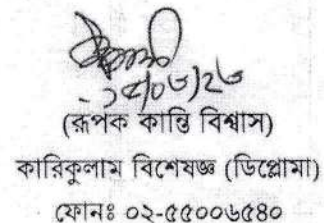 (রূপক কান্তি বিশ্বাস)
কারিকুলাম বিশেষজ্ঞ (ডিপ্লোমা)
ফোনঃ ০২-৫৫০০৬৫৪০